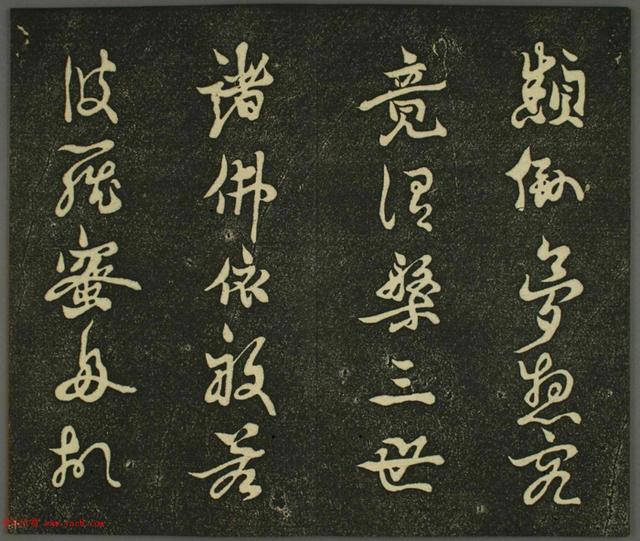 顛倒夢想究
竟涅槃三世
諸佛依般若
波羅蜜多故
www.yac8.com